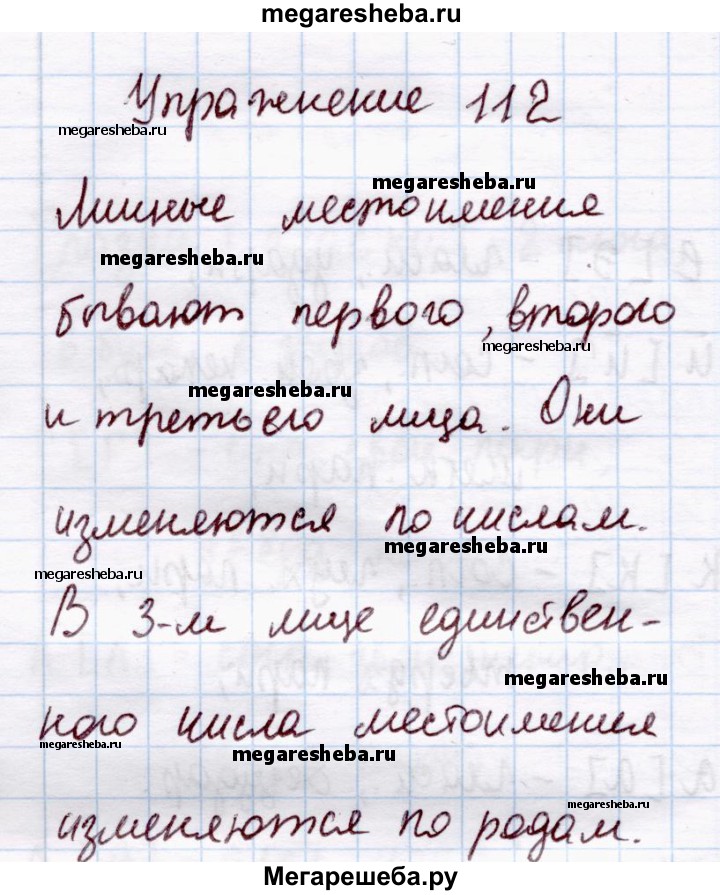 megaresheba.ru
Упражнение 112
megaresheba.ru
megaresheba.ru
Личные местоимения
megaresheba.ru
бывают первого, второго
megaresheba.ru
megaresheba.ru
и третьего лица. Они
изменяются по числам.
megaresheba.ru
megaresheba.ru
В 3-м лице единствен-
megaresheba.ru
ного числа местоимения
megaresheba.ru
megaresheba.ru
megaresheba.ru
изменяются по родам.
Мегарешеба.ру